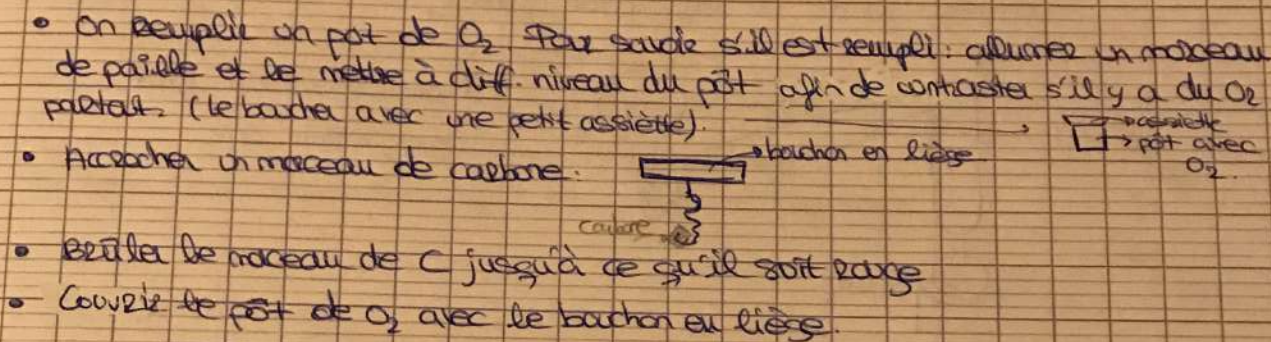 • On remplit un pot de O2. Pour savoir s'il est rempli: allumer un morceau
de paille et le mettre à diff. niveau du pôt afin de contraster s'il y a du O2
partout. (le boucher avec une petit assiette).
assiette
pôt avec
O2.
• Accrocher un morceau de carbone.
bouchon en liège
carbone
• Brûler le morceau de C jusqu'à ce qu'il soit rouge
• Couvrir le pôt de O2 avec le bouchon en liège.